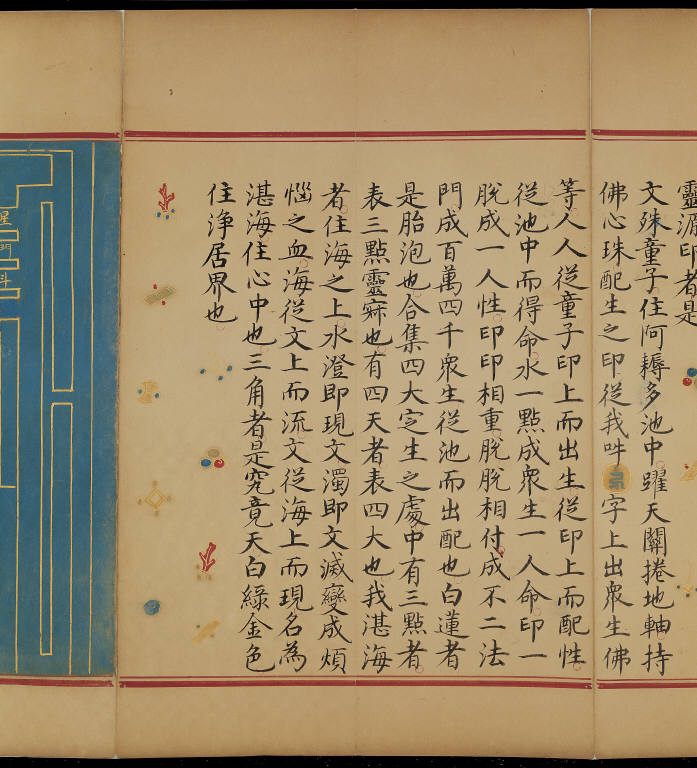 靈源印者是
文殊童子住阿耨多池中躍天關捲地軸持
佛心珠配生之印從我吽字上出衆生佛
等人人從童子印上而出生從印上而配性
從池中而得命水一點成衆生一人命印一
脫成一人性印印相重脫脫相付成不二法
門成百萬四千衆生從池而出配也白蓮者
是胎泡也合集四大定生之處中有三點者
表三點靈寐也有四天者表四大也我湛海
者住海之上水澄即現文濁即文滅變成煩
惱之血海從文上而流文從海上而現名為
湛海住心中也三角者是究竟天白綠金色
住淨居界也
星
門
斗